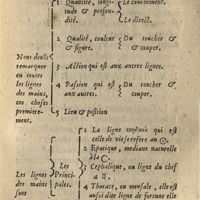 Quantité, longi-
tude & profun-
dité.
Le continement.
Le direct.
2 Qualité, couleur
& figure.
Du toucher &
& couper.
Nous deuõs
remarquer
en toutes
les lignes
des mains
ces choses
premiere-
ment.
3 Action qui est aux autres lignes.
4 Passion qui est
aux autres.
Du toucher &
& couper.
5 Lieu & position
Les lignes
des mains
sont
Les
Princi-
pales.
1 La ligne qui est
celle de vie se refere au ☉.
2 Epatique, mediane naturelle
à la ☾.
3 Cephalique, ou ligne du chef
à
4 Thorace, ou mensale, elle est
aussi dite ligne de fortune elle